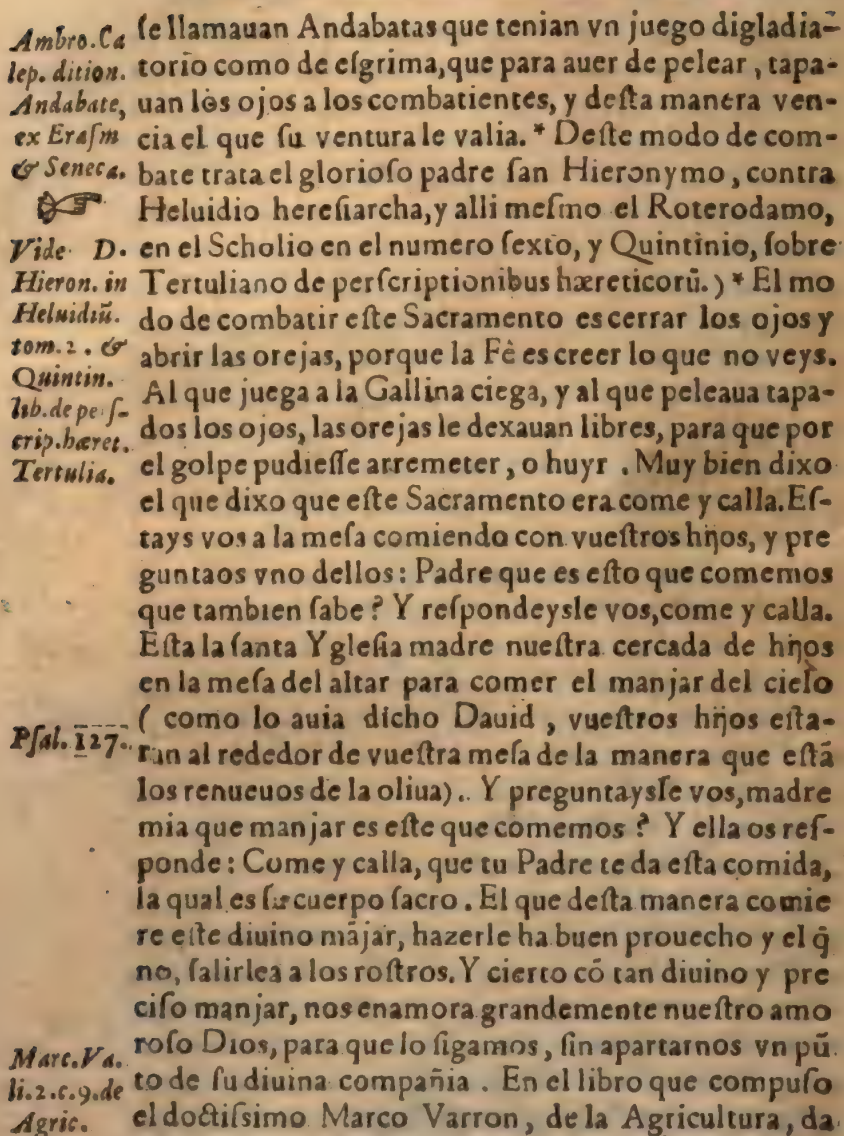 Ambro.Ca
lep. dition.
Andabate,
ex Eraſm
& Seneca.
☞
Vide D.
Hieron. in
Heluidiũ.
tom. 2. &
Quintin.
lib. de perſ-
crip. hæret.
Tertulia.
Pſal. 127.
Marc. Va.
li. 2. c. 9. de
Agric.
ſe llamauan Andabatas que tenian vn juego digladia-
torio como de eſgrima, que para auer de pelear, tapa-
uan los ojos a los combatientes, y deſta manera ven-
cia el que ſu ventura le valia. * Deſte modo de com-
bate trata el glorioſo padre ſan Hieronymo, contra
Heluidio hereſiarcha, y alli meſmo el Roterodamo,
en el Scholio en el numero ſexto, y Quintinio, ſobre
Tertuliano de perſcriptionibus hæreticorũ.) * El mo
do de combatir eſte Sacramento es cerrar los ojos y
abrir las orejas, porque la Fè es creer lo que no veys.
Al que juega a la Gallina ciega, y al que peleaua tapa-
dos los ojos, las orejas le dexauan libres, para que por
el golpe pudieſſe arremeter, o huyr. Muy bien dixo
el que dixo que eſte Sacramento era come y calla. Eſ-
tays vos a la meſa comiendo con vueſtros hijos, y pre
guntaos vno dellos: Padre que es eſto que comemos
que tambien ſabe? Y reſpondeysle vos, come y calla.
Eſta la ſanta Ygleſia madre nueſtra cercada de hijos
en la meſa del altar para comer el manjar del cielo
( como lo auia dicho Dauid, vueſtros hijos eſta-
ran al rededor de vueſtra meſa de la manera que eſtã
los renueuos de la oliua).. Y preguntaysle vos, madre
mia que manjar es eſte que comemos? Y ella os reſ-
ponde: Come y calla, que tu Padre te da eſta comida,
la qual es ſu cuerpo ſacro. El que deſta manera comie
re eſte diuino mãjar, hazerle ha buen prouecho y el q̃
no, ſalirlea a los roſtros. Y cierto cõ tan diuino y pre
ciſo manjar, nos enamora grandemente nueſtro amo
roſo Dios, para que lo ſigamos, ſin apartarnos vn pũ
to de ſu diuina compañia. En el libro que compuſo
el doctiſsimo Marco Varron, de la Agricultura, da